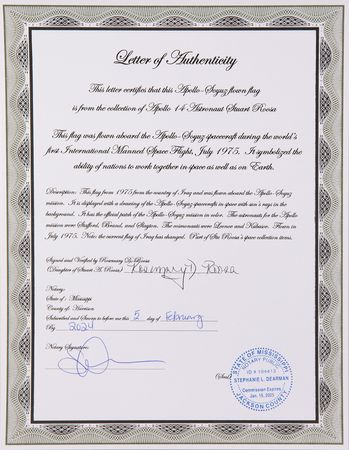 Letter of Authenticity
This letter certifies that this Apollo-Soyuz flown flag
is from the collection of Apollo 14 Astronaut Stuart Roosa
This flag was flown aboard the Apollo-Soyuz spacecraft during the world's
first International Manned Space Flight, July 1975. It symbolized the
ability of nations to work together in space as well as on Earth.
Description: This flag from 1975 from the country of Iraq and was flown aboard the Apollo-Soyuz
mission. It is displayed with a drawing of the Apollo-Soyuz spacecrafts in space with sun's rays in the
background. It has the official patch of the Apollo-Soyuz mission in color. The astronauts for the Apollo
mission were Stafford, Brand, and Slayton. The cosmonauts were Leonov and Kubasov. Flown in
July 1975. Note: the current flag of Iraq has changed. Part of Stu Roosa's space collection items.
Signed and Verified by Rosemary D. Roosa
(Daughter of Stuart A. Roosa) Rosemary D Roosa
Notary:
State of: Mississippi
County of: Harrison
Subscribed and Sworn to me this 5 day of February
By 2024
Notary Signature:
(Seal)
STATE OF MISSISSIPPI
NOTARY PUBLIC
ID #
STEPHANIE L. DEARMAN
Commission Expires
Jan. 15, 2025
JACKSON COUNTY